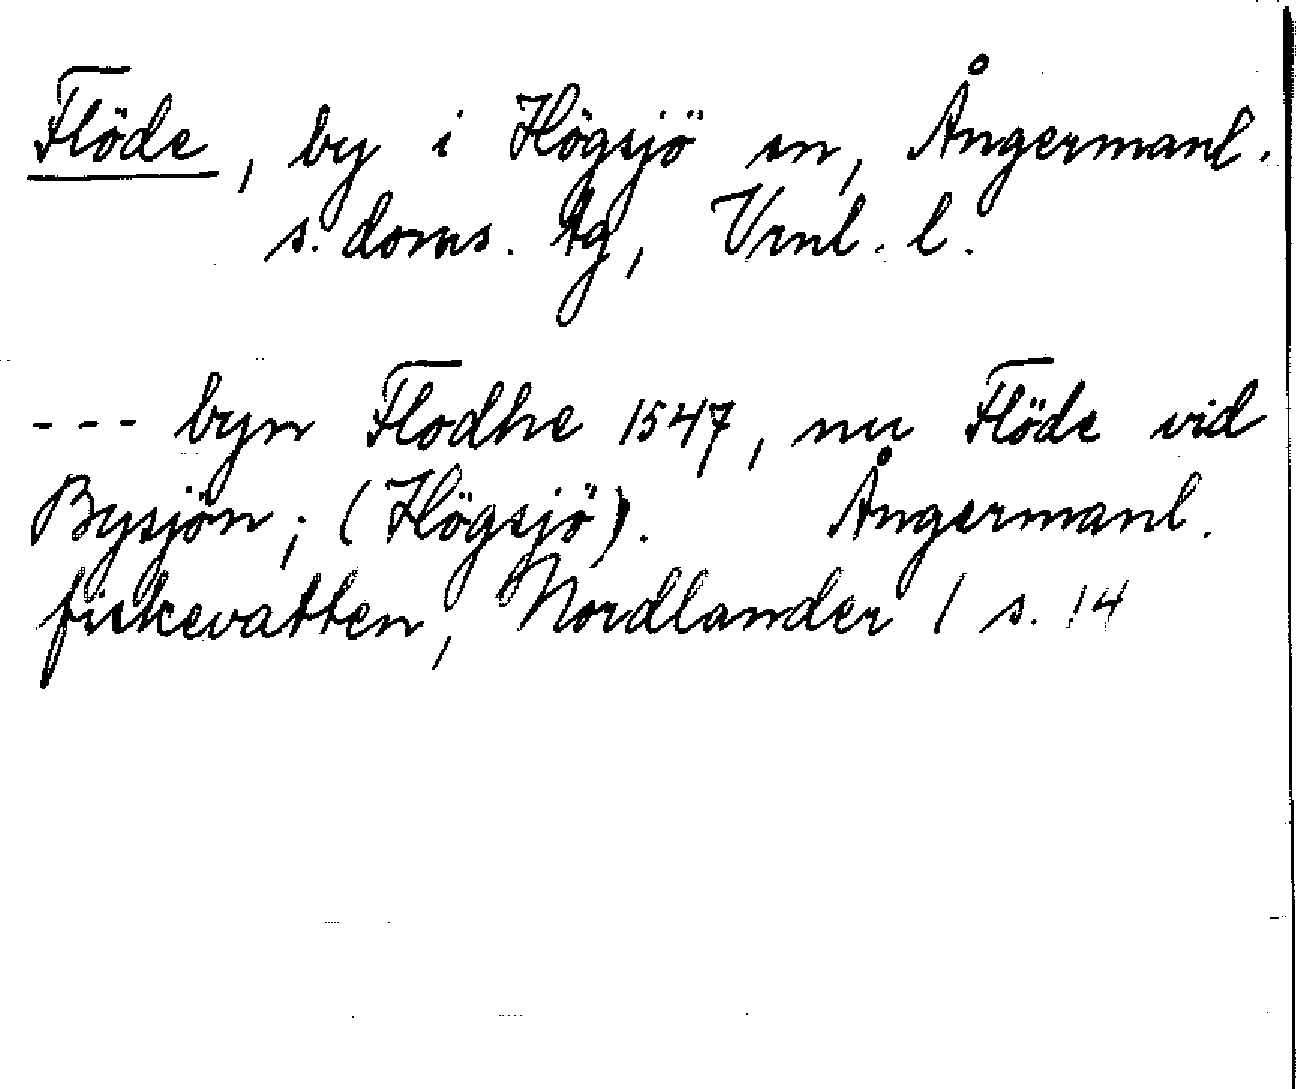 Flöde, by i Högsjö sn, Ångermanl.
s. doms. tg, Vrnl. l.
--- byn Flodhe 1547, nu Flöde vid
Bysjön; (Högsjö). Ångermanl.
fiskevatten, Nordlander / s. 14